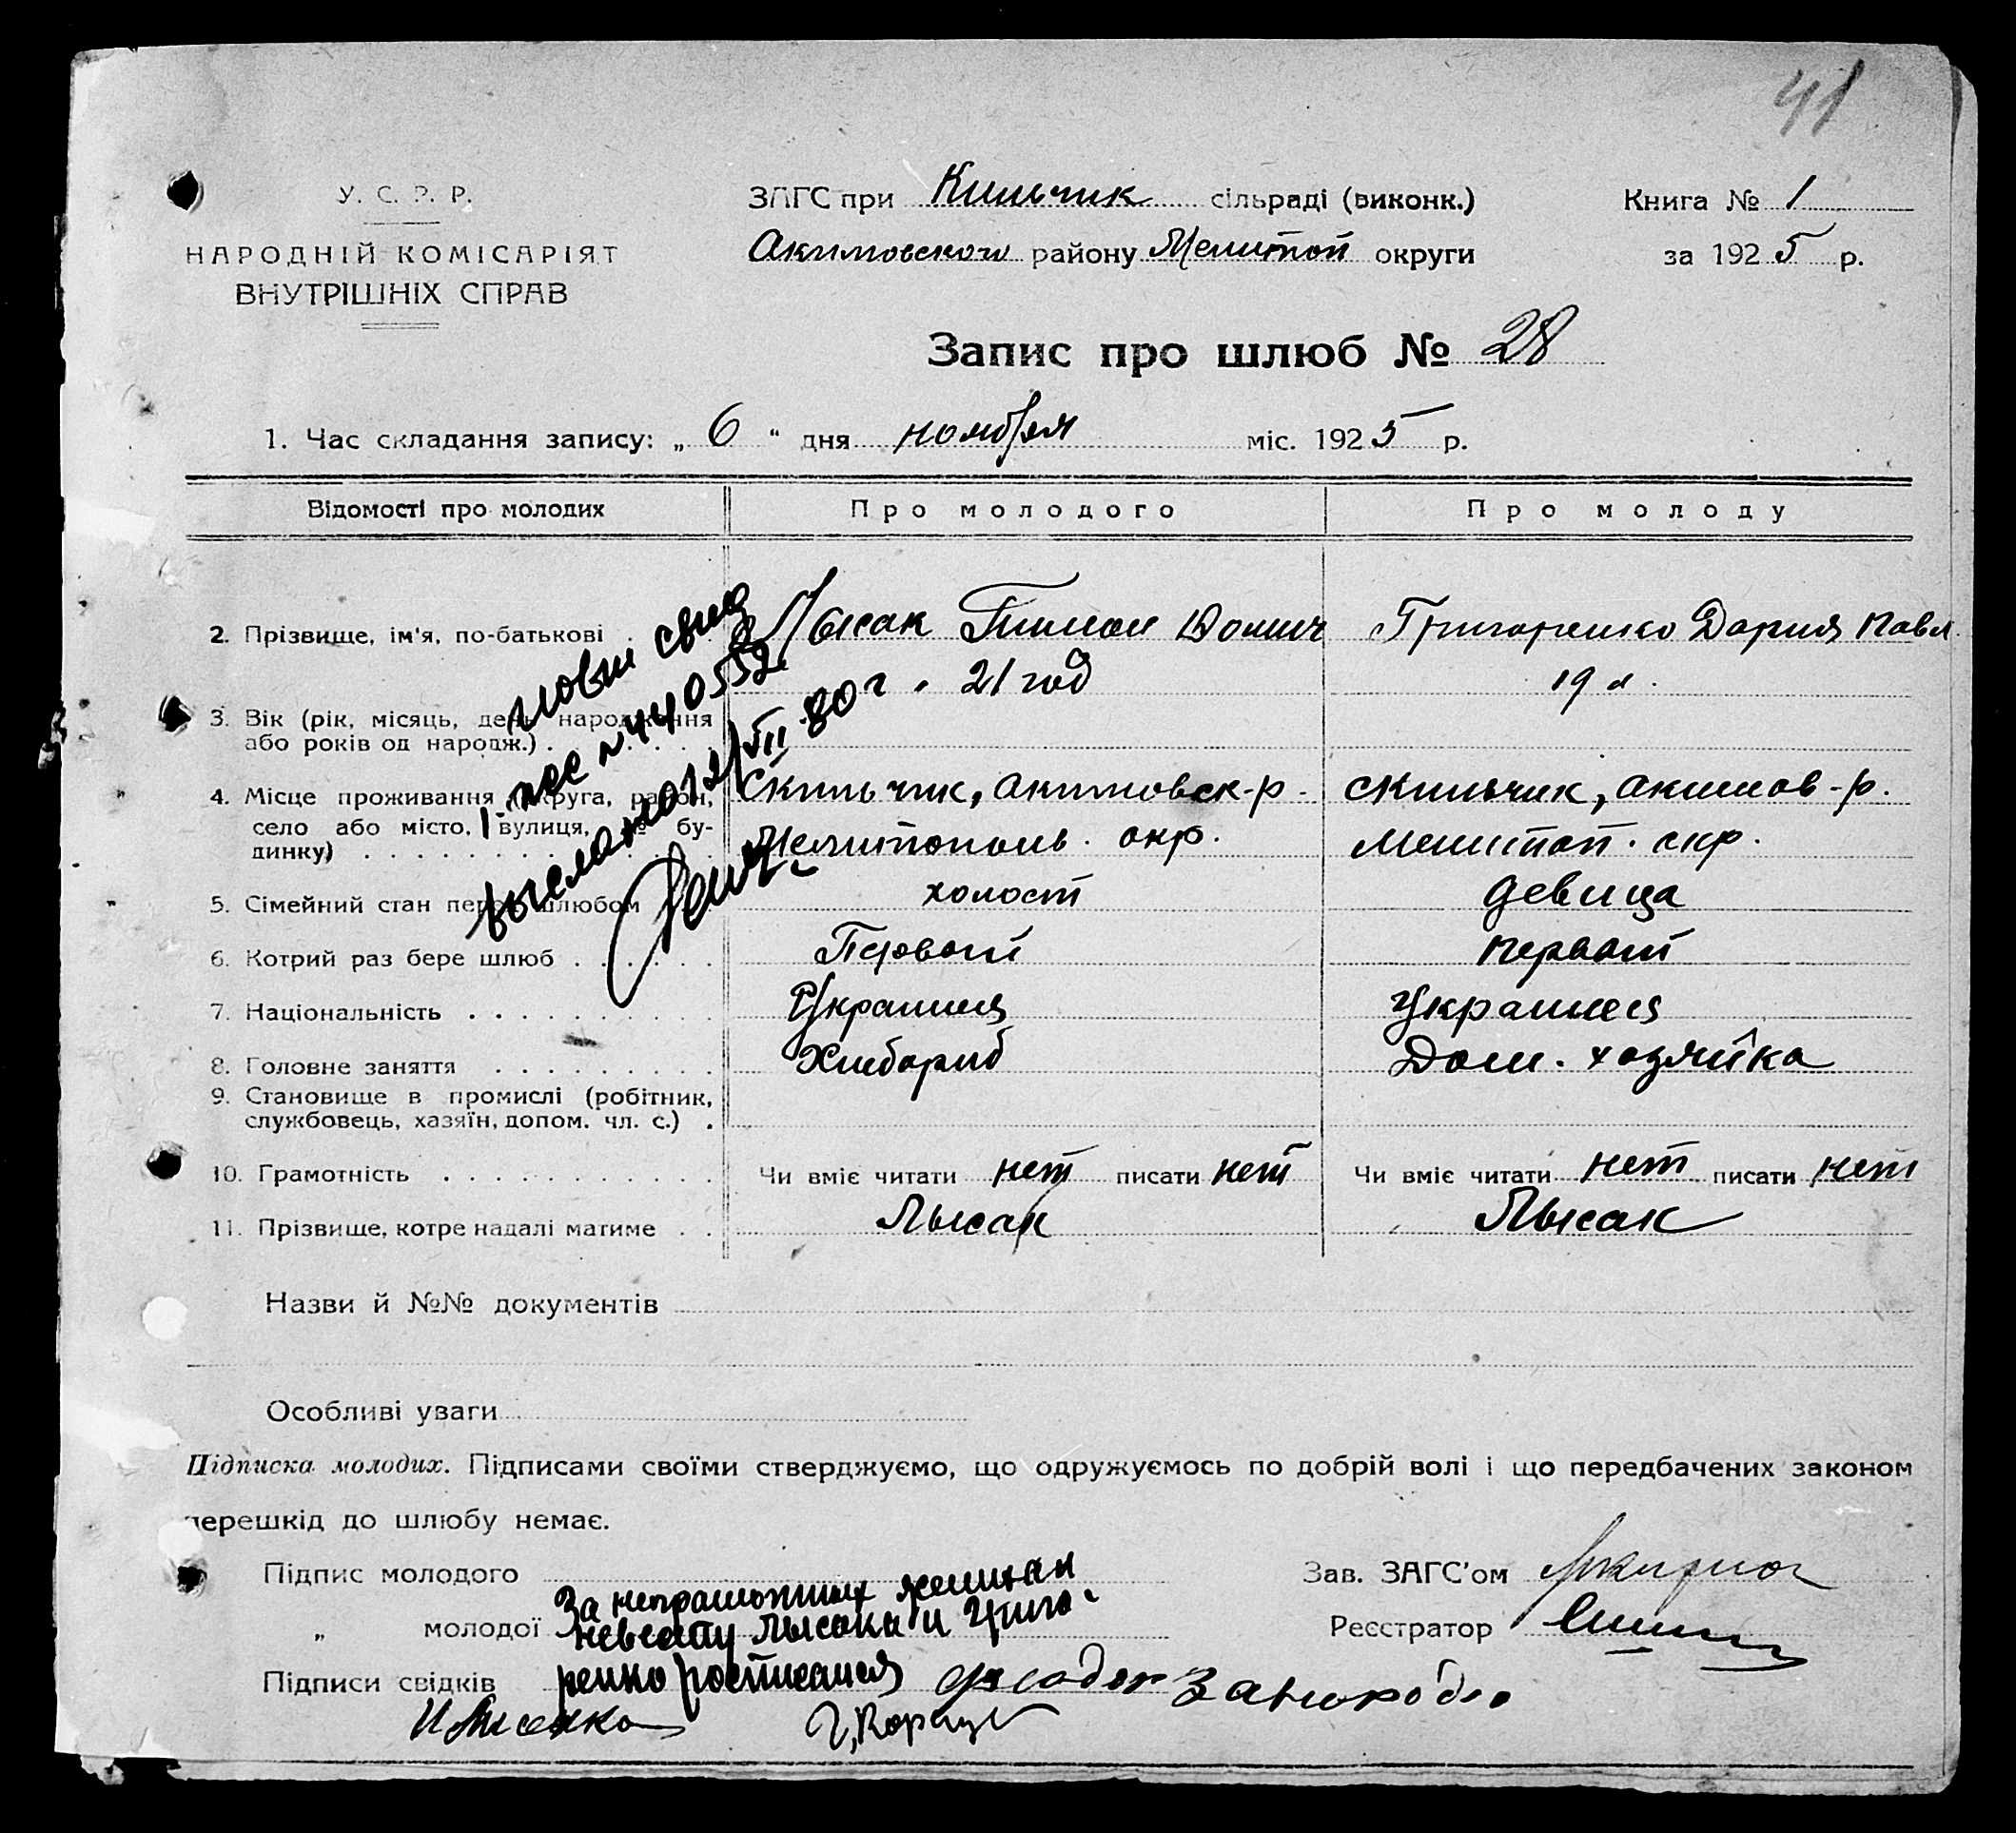 41
У. С. Р. Р.
НАРОДНІЙ КОМІСАРІЯТ
ВНУТРІШНІХ СПРАВ
ЗАГС при Кильчик сільраді (виконк.)
Акимовского району Мелитоп округи
Книга № 1
за 1925 р.
Запис про шлюб № 28
1. Час складання запису: „ 6 “ дня ноября міс. 1925 р.
Відомості про молодих
Про молодого
Про молоду
2. Прізвище, ім'я, по-батькові
Лысак
Григоренко Дария Павл
21 год
19 л.
3. Вік (рік, місяць, день народження
або років од народж.)
4. Місце проживання (округа, район,
село або місто, вулиця, № бу-
динку)
Скильчик, Акимовск-р.
Мелитополь. окр.
Скильчик, Акимов-р.
Мелитоп. окр.
5. Сімейний стан перед шлюбом
холост
девица
6. Котрий раз бере шлюб
Первый
первый
7. Національність
Украинец
8. Головне заняття
Хлебороб
Дом. хозяйка
9. Становище в промислі (робітник,
службовець, хазяїн, допом. чл. с.)
10. Грамотність
Чи вміє читати нет писати нет
Чи вміє читати нет писати нет
11. Прізвище, котре надалі матиме
Лысак
Лысак
свид
№ 440552
выслано 12/VII 80 г.
Назви й №№ документів
Особливі уваги
Підписка молодих. Підписами своїми стверджуємо, що одружуємось по добрій волі і що передбачених законом
перешкід до шлюбу немає.
Підпис молодого
„ молодої
За неграмотных
невесту Лысака и Григо-
ренко росписался
Підписи свідків
Зав. ЗАГС'ом
Реєстратор